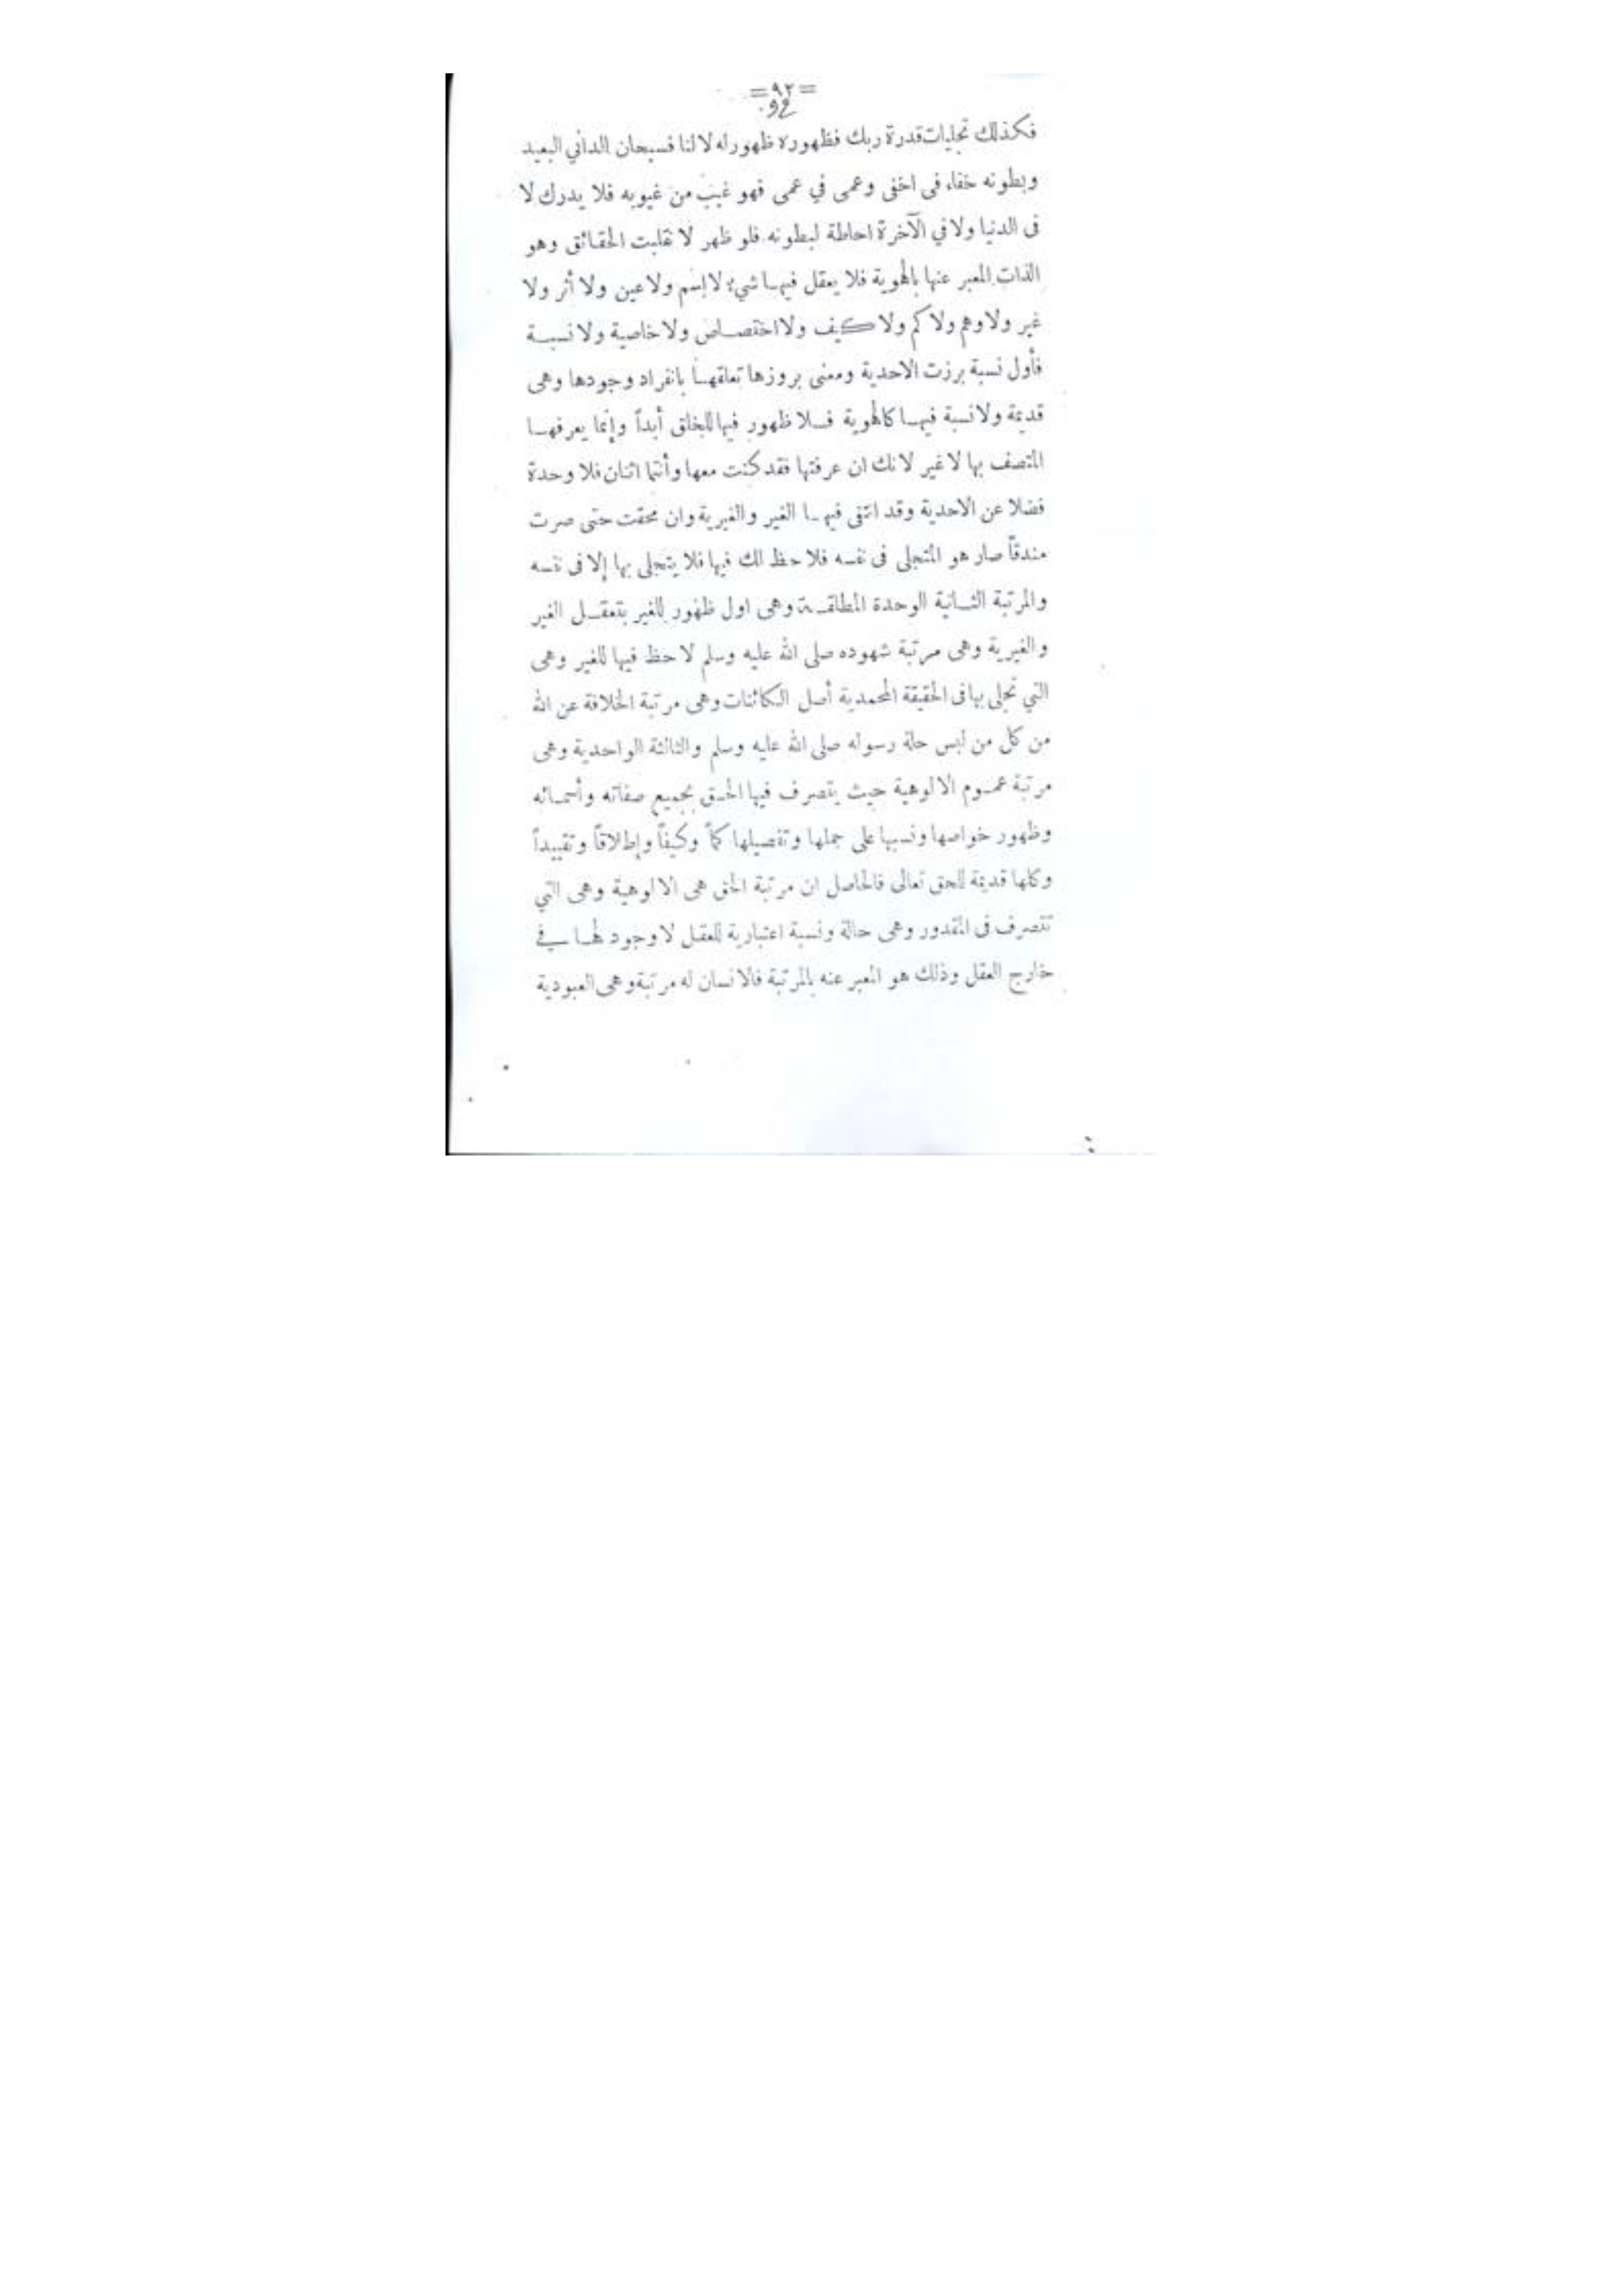 =٩٢=
92
فكذلك تجليات قدرة ربك فظهوره ظهور له لا لنا فسبحان الداني البعيد
وبطونه خفاء فى اخفى وعمى في عمى فهو غيب من غيوبه فلا يدرك لا
فى الدنيا ولا في الآخرة احاطة لبطونه فلو ظهر لانقلبت الحقائق وهو
الذات المعبر عنها بالهوية فلا يعقل فيها شيء لا إسم ولا عين ولا أثر ولا
غير ولا وهم ولا كم ولا كيف ولا اختصاص ولا خاصية ولا نسبة
فأول نسبة برزت الاحدية ومعنى بروزها تعلقها بانفراد وجودها وهى
قديمة ولا نسبة فيها كالهوية فلا ظهور فيها للخلق أبداً وإنما يعرفها
المتصف بها لا غير لانك ان عرفتها فقد كنت معها وأنتما اثنان فلا وحدة
فضلا عن الاحدية وقد انتفى فيها الغير والغيرية وان محقت حتى صرت
مندقاً صار هو المتجلى فى نفسه فلا حظ لك فيها فلا يتجلى بها إلا فى نفسه
والمرتبة الثانية الوحدة المطلقة وهى اول ظهور للغير بتعقل الغير
والغيرية وهى مرتبة شهوده صلى الله عليه وسلم لا حظ فيها للغير وهى
التي تجلى بها فى الحقيقة المحمدية أصل الكائنات وهى مرتبة الخلافة عن الله
من كل من لبس حلة رسوله صلى الله عليه وسلم والثالثة الواحدية وهى
مرتبة عموم الالوهية حيث يتصرف فيها الحق بجميع صفاته وأسمائه
وظهور خواصها ونسبها على جملها وتفصيلها كماً وكيفاً وإطلاقاً وتقييداً
وكلها قديمة للحق تعالى فالحاصل ان مرتبة الحق هى الالوهية وهى التي
تتصرف فى المقدور وهى حالة ونسبة اعتبارية للعقل لا وجود لها في
خارج العقل وذلك هو المعبر عنه بالمرتبة فالانسان له مرتبة وهى العبودية